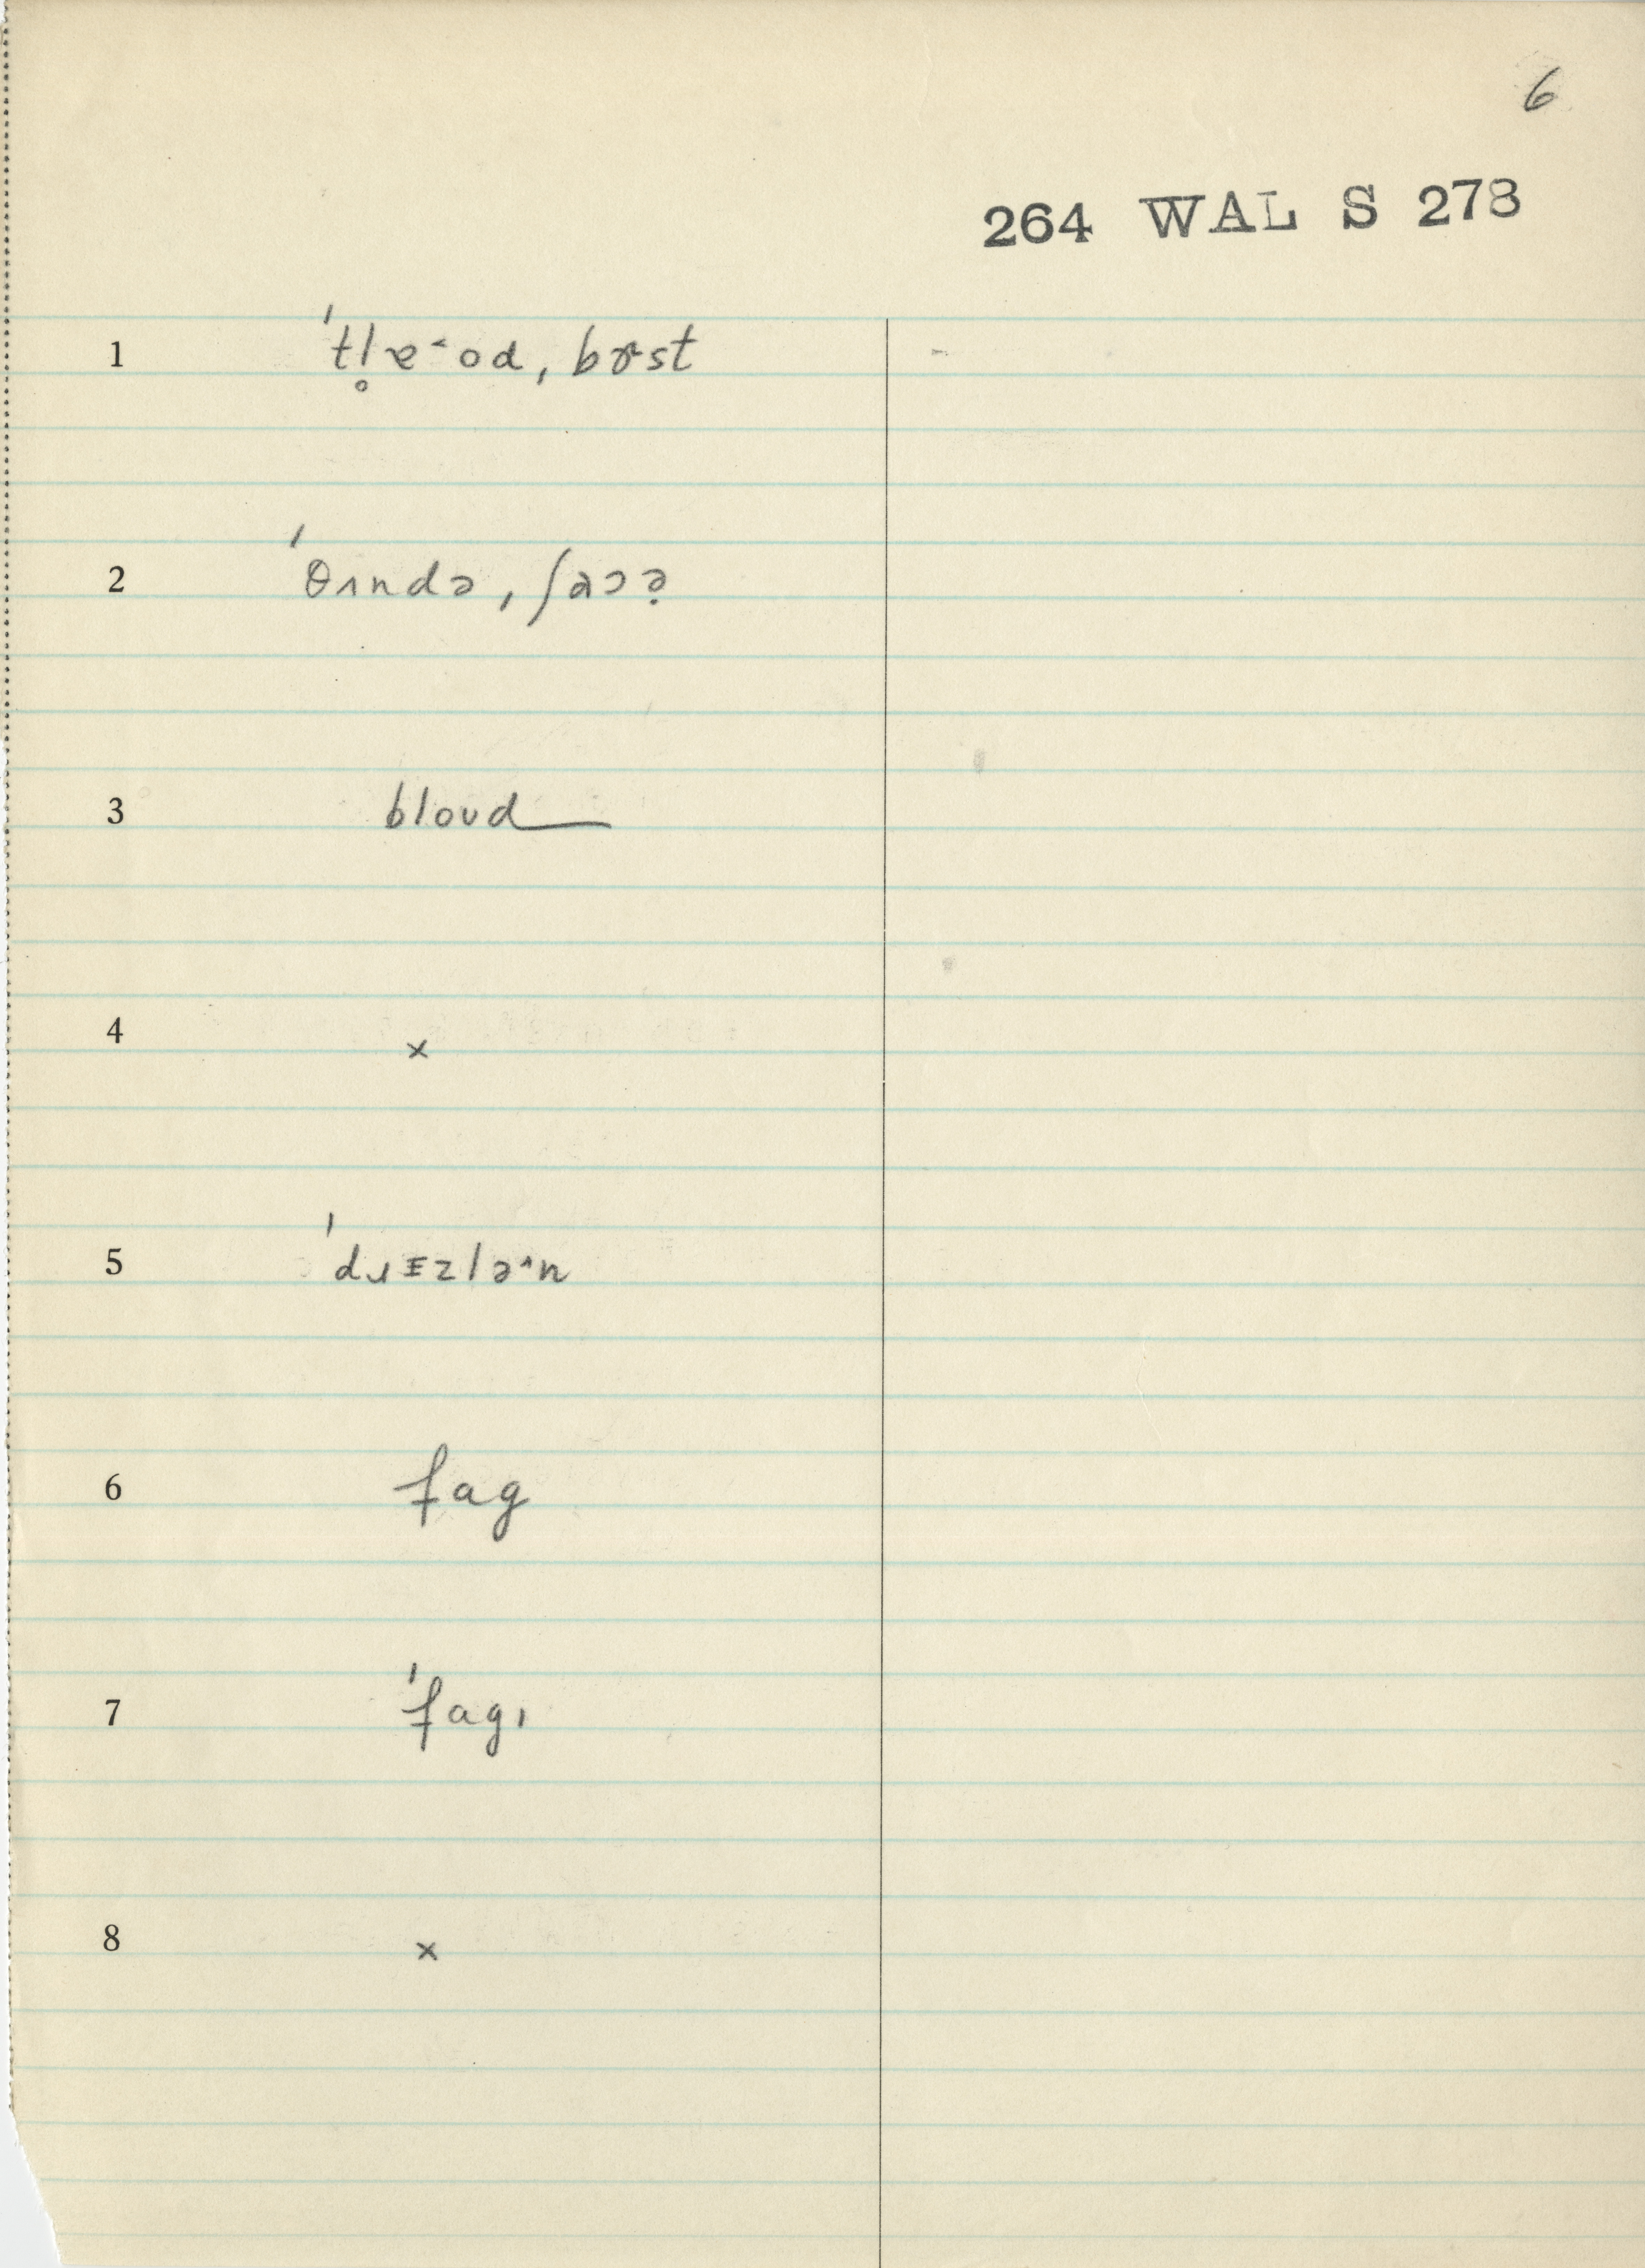 6
264 WAL S 273
1 ˈtl̥ɐ˂od, bɤst
2 ˈθʌndə, ʃaɔə̣
3 bloud
4 x
5 ˈdɹɪzlə˄n
6 fag
7 ˈfagɪ
8 x